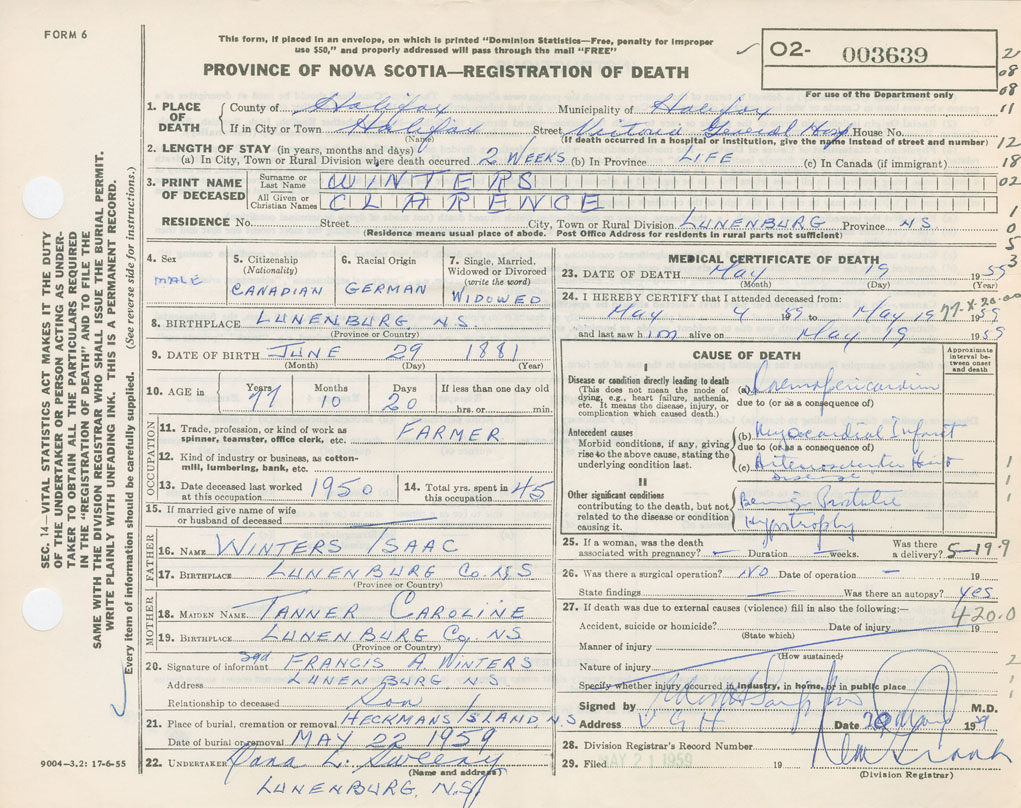 FORM 6
This form, if placed in an envelope, on which is printed "Dominion Statistics—Free, penalty for improper
use $50," and properly addressed will pass through the mail "FREE"
O2- 003639
For use of the Department only
PROVINCE OF NOVA SCOTIA—REGISTRATION OF DEATH
1. PLACE OF DEATH
County of Halifax Municipality of Halifax
If in City or Town Halifax Street Victoria General Hosp. House No.
(Name) (If death occurred in a hospital or institution, give the name instead of street and number)
2. LENGTH OF STAY (in years, months and days)
(a) In City, Town or Rural Division where death occurred 2 WEEKS (b) In Province LIFE (c) In Canada (if immigrant)
3. PRINT NAME OF DECEASED
Surname or Last Name WINTERS
All Given or Christian Names CLARENCE
RESIDENCE No. Street City, Town or Rural Division LUNENBURG Province NS
(Residence means usual place of abode. Post Office Address for residents in rural parts not sufficient)
4. Sex
MALE
5. Citizenship
(Nationality)
CANADIAN
6. Racial Origin
GERMAN
7. Single, Married,
Widowed or Divorced
(write the word)
WIDOWED
8. BIRTHPLACE LUNENBURG, N.S.
(Province or Country)
9. DATE OF BIRTH JUNE 29 1881
(Month) (Day) (Year)
10. AGE in
Years Months Days If less than one day old
77 10 20 hrs. or min.
OCCUPATION
11. Trade, profession, or kind of work as
spinner, teamster, office clerk, etc. FARMER
12. Kind of industry or business, as cotton-
mill, lumbering, bank, etc.
13. Date deceased last worked
at this occupation 1950
14. Total yrs. spent in
this occupation 45
15. If married give name of wife
or husband of deceased
FATHER
16. NAME WINTERS ISAAC
17. BIRTHPLACE LUNENBURG CO. N S
(Province or Country)
MOTHER
18. MAIDEN NAME TANNER CAROLINE
19. BIRTHPLACE LUNENBURG CO. NS
(Province or Country)
20. Signature of informant sgd FRANCIS A. WINTERS
Address LUNENBURG NS
Relationship to deceased Son
21. Place of burial, cremation or removal HECKMANS ISLAND N.S
Date of burial or removal MAY 22 1959
22. UNDERTAKER Dana L. Sweeny
(Name and address)
LUNENBURG, N.S.
9004—3.2: 17-6-55
MEDICAL CERTIFICATE OF DEATH
23. DATE OF DEATH May 19 1959
(Month) (Day) (Year)
24. I HEREBY CERTIFY that I attended deceased from:
May 4 1959 to May 19 1959
and last saw him alive on May 19 1959
77-X-20-00
CAUSE OF DEATH
Approximate
interval be-
tween onset
and death
I
Disease or condition directly leading to death
(This does not mean the mode of
dying, e.g., heart failure, asthenia,
etc. It means the disease, injury, or
complication which caused death.)
(a) Haemopericardium
due to (or as a consequence of)
Antecedent causes
Morbid conditions, if any, giving
rise to the above cause, stating the
underlying condition last.
(b) Myocardial Infarct
due to (or as a consequence of)
(c) Arteriosclerotic Heart
Disease
II
Other significant conditions
contributing to the death, but not
related to the disease or condition
causing it.
Benign Prostatic
Hypertrophy
25. If a woman, was the death
associated with pregnancy? Duration weeks. Was there
a delivery?
5-19-9
26. Was there a surgical operation? NO Date of operation 19
State findings Was there an autopsy? yes
27. If death was due to external causes (violence) fill in also the following:—
420.0
Accident, suicide or homicide? Date of injury 19
(State which)
Manner of injury
(How sustained)
Nature of injury
Specify whether injury occurred in industry, in home, or in public place
Signed by M.D.
Address V G H Date 20 May 1959
28. Division Registrar's Record Number
29. Filed MAY 21 1959 19
(Division Registrar)
SEC. 14—VITAL STATISTICS ACT MAKES IT THE DUTY
OF THE UNDERTAKER OR PERSON ACTING AS UNDER-
TAKER TO OBTAIN ALL THE PARTICULARS REQUIRED
IN THE "REGISTRATION OF DEATH" AND TO FILE THE
SAME WITH THE DIVISION REGISTRAR WHO SHALL ISSUE THE BURIAL PERMIT.
WRITE PLAINLY WITH UNFADING INK. THIS IS A PERMANENT RECORD.
Every item of information should be carefully supplied. (See reverse side for instructions.)
08
08
11
12
18
02
1
0
5
3
1
1
1
2
1
1